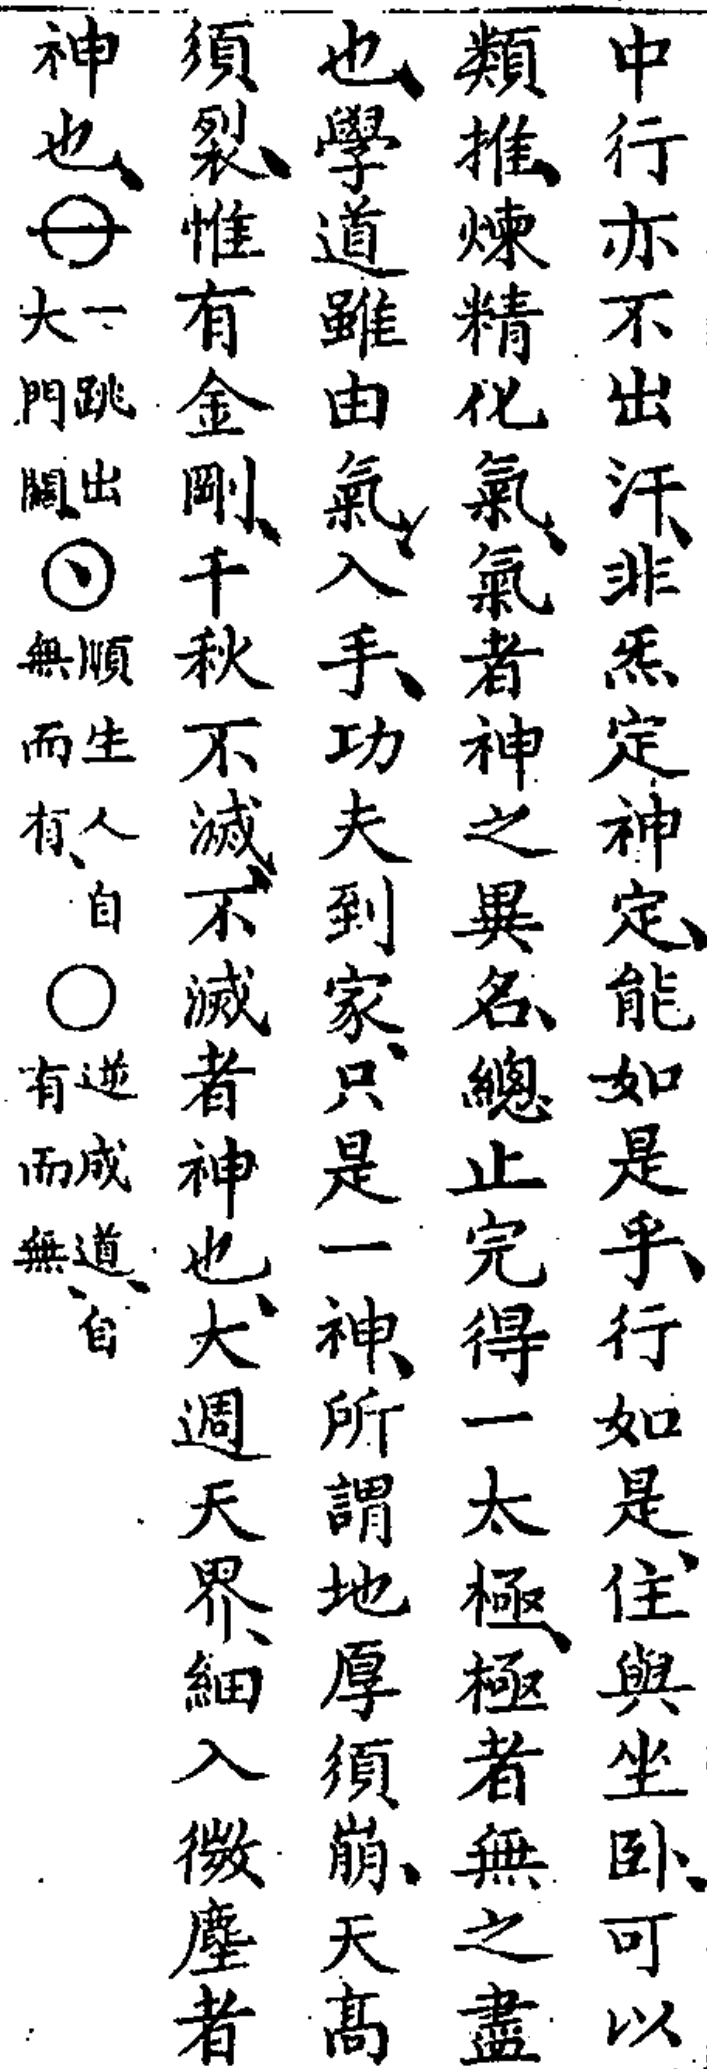 中行亦不出汗、非炁定神定、能如是乎、行如是、住與坐卧、可以
類推、煉精化氣、氣者神之異名、總止完得一太極、極者無之盡
也、學道雖由氣、入手、功夫到家、只是一神、所謂地厚須崩、天高
須裂、惟有金剛、千秋不滅、不滅者神也、大週天界、細入微塵者
神也、
一、跳出
大門闗、
順生人自
無而有、
〇
逆成道、自
有而無、